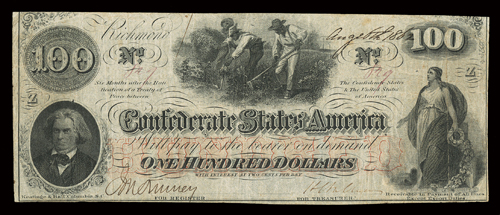 Richmond
Augst 1862
100
No
No
100
Six Months after the Rati
fication of a Treaty of
Peace between
The Confederate States
& The United States
of America
Confederate States of America
Will pay to the bearer on demand
ONE HUNDRED DOLLARS
WITH INTEREST AT TWO CENTS PER DAY
FOR REGISTER
FOR TREASURER
Receivable in Payment of All Dues
Except Export Duties